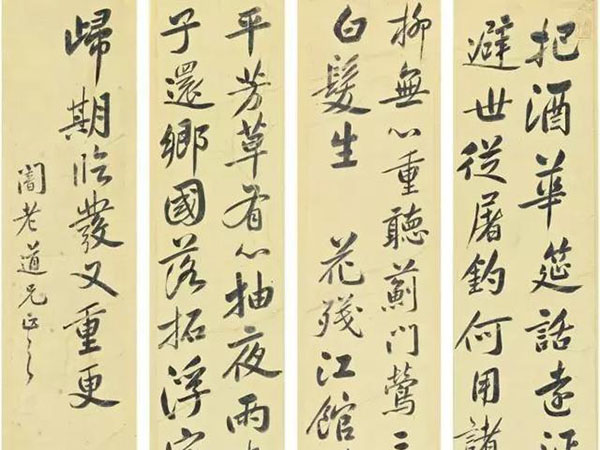 把酒華筵話遠
避世從屠釣何用諸
柳無心重聽薊門鶯
白髮生 花殘江館
平芳草有心抽夜雨
子還鄉國落拓浮
歸期臨發又重更
闇老道兄正之